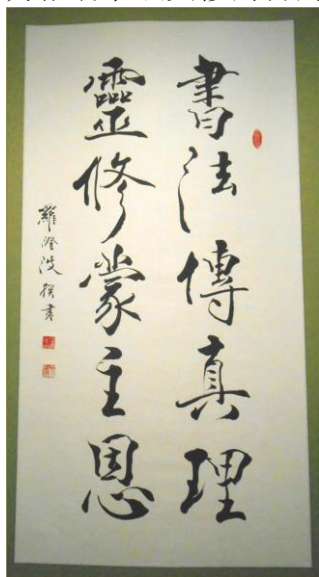 書法傳真理
靈修蒙主恩
羅澄波撰書